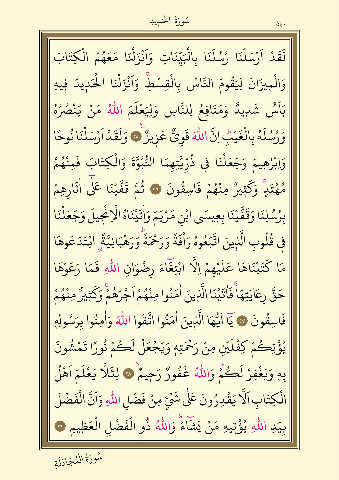 سُورَةُ الْحَدِيدِ
٥٤٠
لَقَدْ اَرْسَلْنَا رُسُلَنَا بِالْبَيِّنَاتِ وَاَنْزَلْنَا مَعَهُمُ الْكِتَابَ
وَالْمِيزَانَ لِيَقُومَ النَّاسُ بِالْقِسْطِۚ وَاَنْزَلْنَا الْحَدِيدَ فِيهِ
بَأْسٌ شَدِيدٌ وَمَنَافِعُ لِلنَّاسِ وَلِيَعْلَمَ اللّٰهُ مَنْ يَنْصُرُهُ
وَرُسُلَهُ بِالْغَيْبِۜ اِنَّ اللّٰهَ قَوِيٌّ عَزِيزٌ ۟ ﴿٢٥﴾ وَلَقَدْ اَرْسَلْنَا نُوحًا
وَاِبْرٰهِيمَ وَجَعَلْنَا فِى ذُرِّيَّتِهِمَا النُّبُوَّةَ وَالْكِتَابَ فَمِنْهُمْ
مُهْتَدٍۚ وَكَثِيرٌ مِنْهُمْ فَاسِقُونَ ﴿٢٦﴾ ثُمَّ قَفَّيْنَا عَلٰٓى اٰثَارِهِمْ
بِرُسُلِنَا وَقَفَّيْنَا بِعِيسَى ابْنِ مَرْيَمَ وَاٰتَيْنَاهُ الْاِنْجِيلَ وَجَعَلْنَا
فِى قُلُوبِ الَّذِينَ اتَّبَعُوهُ رَأْفَةً وَرَحْمَةًۜ وَرَهْبَانِيَّةًۨ ابْتَدَعُوهَا
مَا كَتَبْنَاهَا عَلَيْهِمْ اِلَّا ابْتِغَٓاءَ رِضْوَانِ اللّٰهِ فَمَا رَعَوْهَا
حَقَّ رِعَايَتِهَاۚ فَاٰتَيْنَا الَّذِينَ اٰمَنُوا مِنْهُمْ اَجْرَهُمْۚ وَكَثِيرٌ مِنْهُمْ
فَاسِقُونَ ﴿٢٧﴾ يَٓا اَيُّهَا الَّذِينَ اٰمَنُوا اتَّقُوا اللّٰهَ وَاٰمِنُوا بِرَسُولِهِ
يُؤْتِكُمْ كِفْلَيْنِ مِنْ رَحْمَتِهِ وَيَجْعَلْ لَكُمْ نُورًا تَمْشُونَ
بِهِ وَيَغْفِرْ لَكُمْۜ وَاللّٰهُ غَفُورٌ رَحِيمٌۚ ﴿٢٨﴾ لِئَلَّا يَعْلَمَ اَهْلُ
الْكِتَابِ اَلَّا يَقْدِرُونَ عَلٰى شَيْءٍ مِنْ فَضْلِ اللّٰهِ وَاَنَّ الْفَضْلَ
بِيَدِ اللّٰهِ يُؤْتِيهِ مَنْ يَشَٓاءُۜ وَاللّٰهُ ذُو الْفَضْلِ الْعَظِيمِ ﴿٢٩﴾
سُورَةُ الْمُجَادَلَةِ